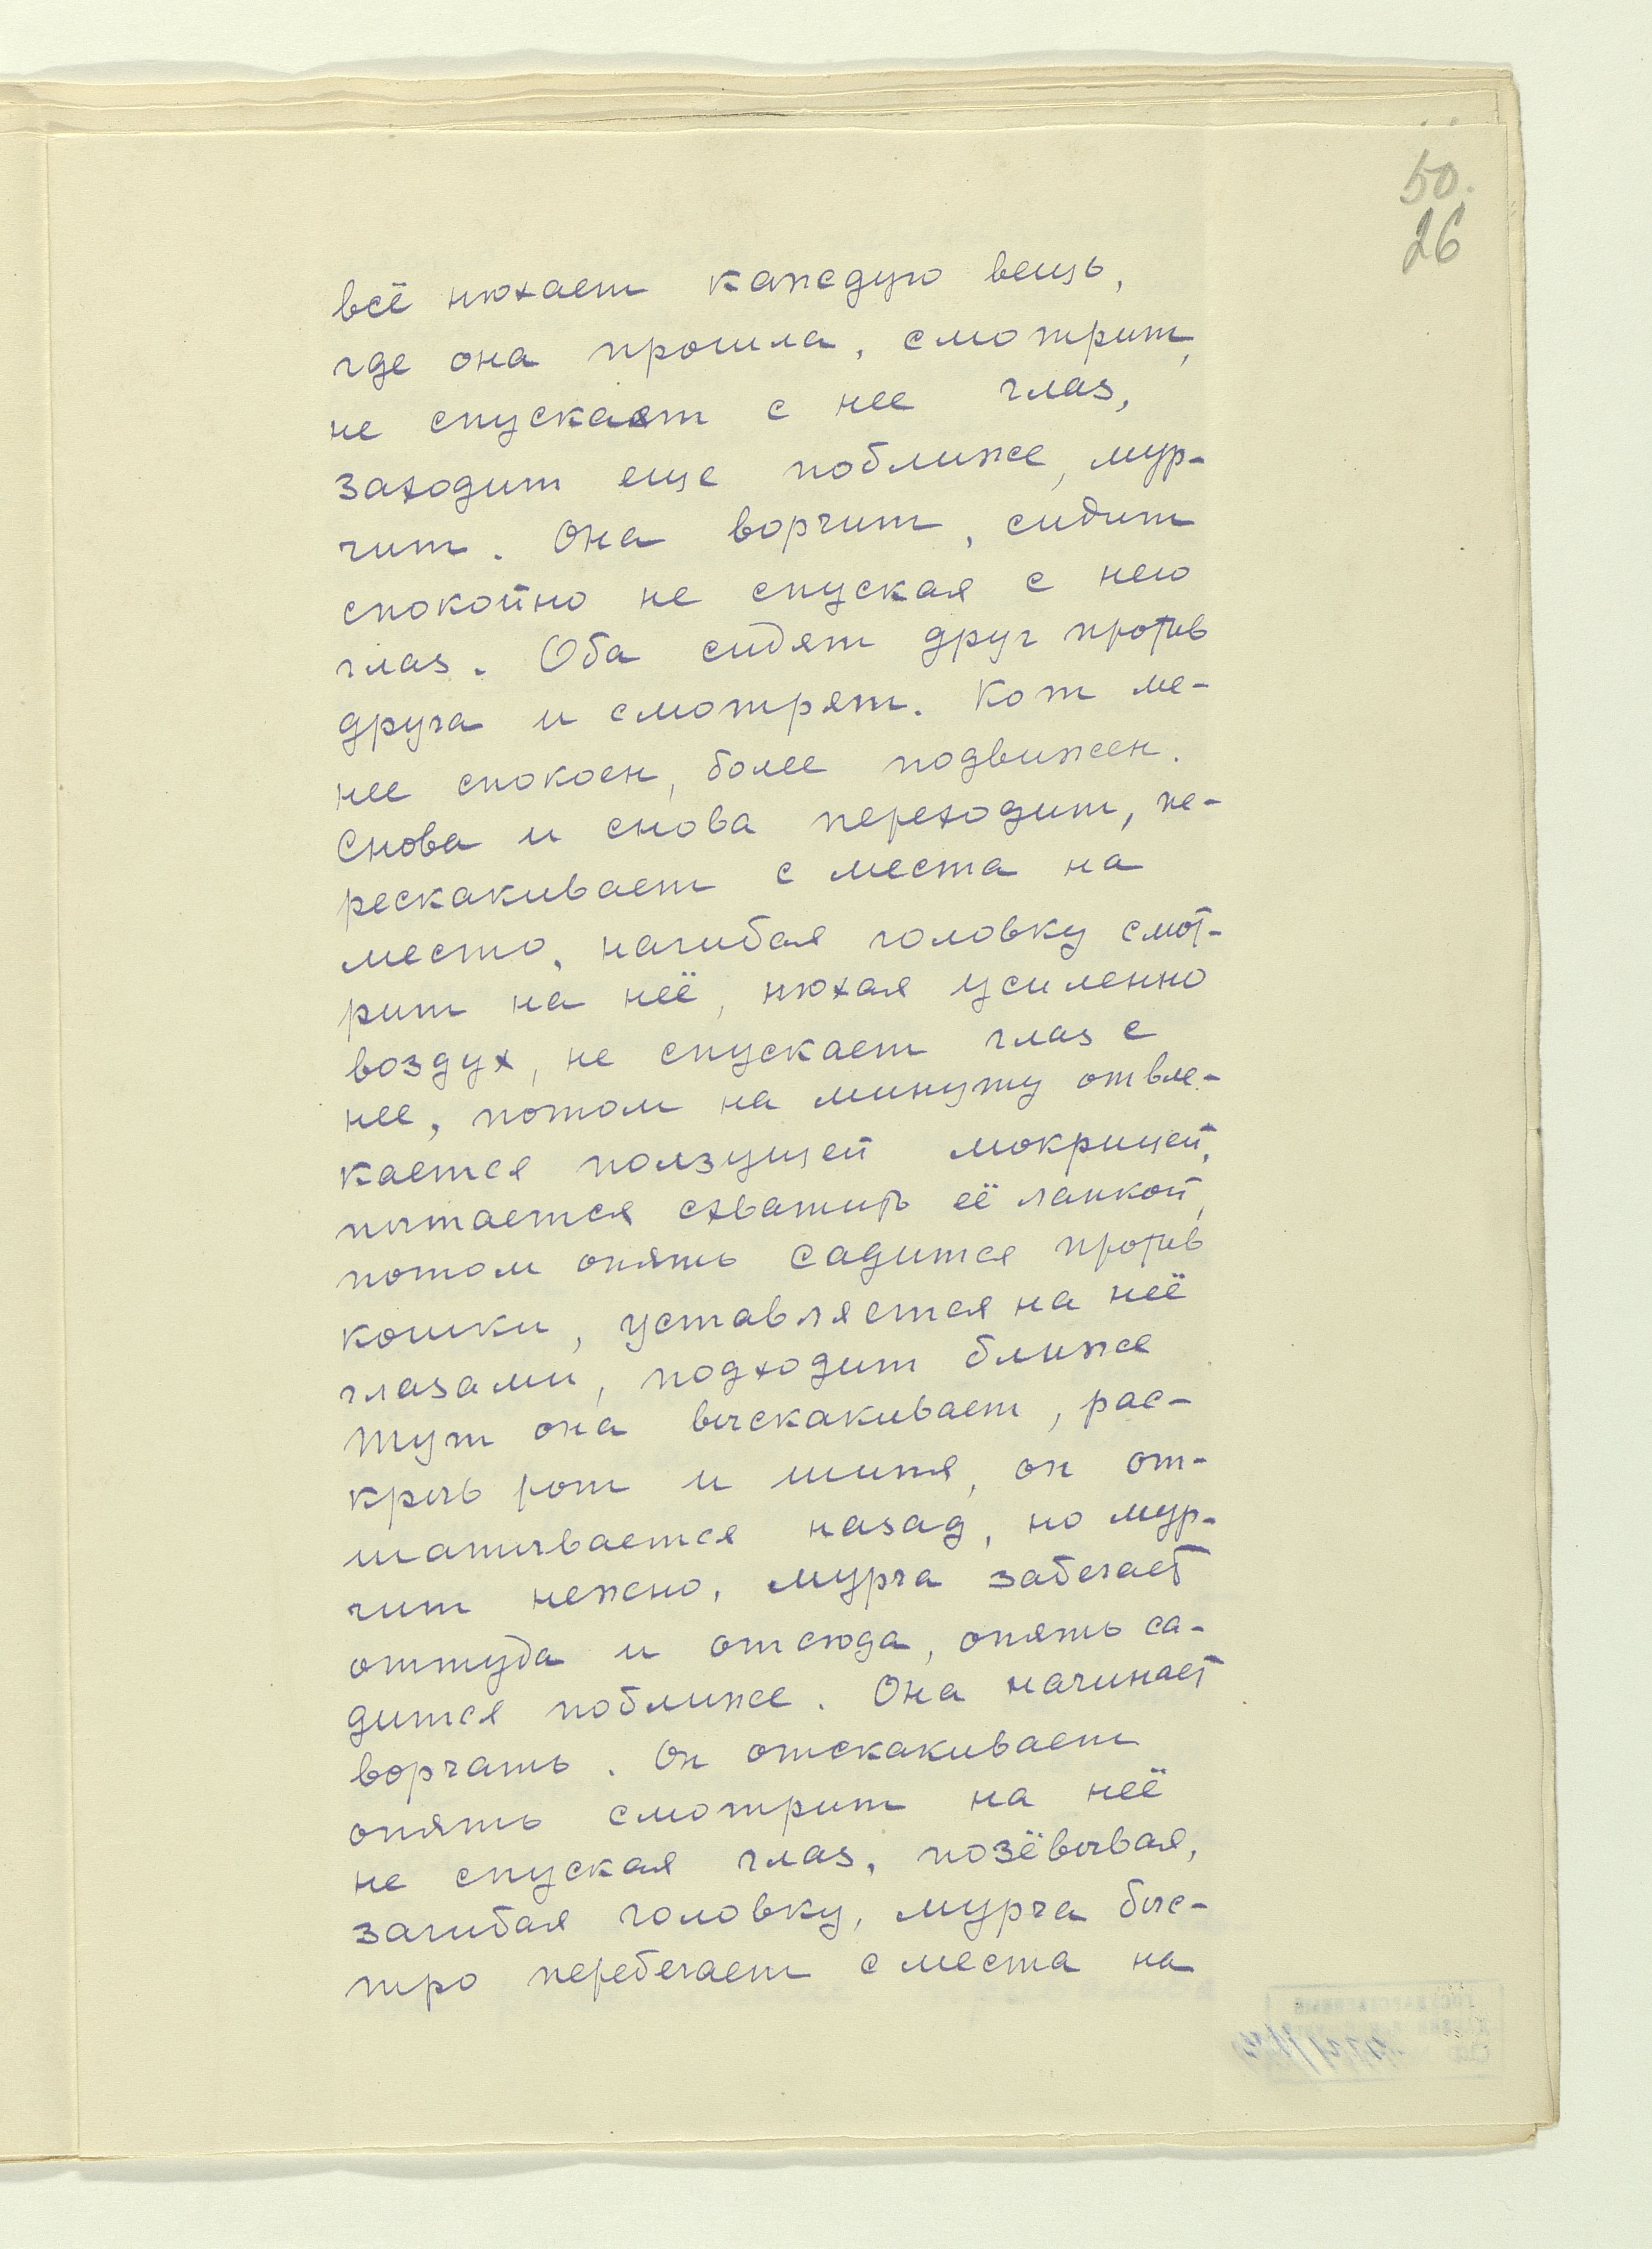 50.
26
всё нюхает каждую вещь,
где она прошла, смотрит,
не спускает с нее глаз,
заходит еще поближе, мур-
чит. Она ворчит, сидит
спокойно не спуская с него
глаз. Оба сидят друг против
друга и смотрят. Кот ме-
нее спокоен, более подвижен.
Снова и снова переходит, пе-
рескакивает с места на
место, нагибая головку смот-
рит на неё, нюхая усиленно
воздух, не спускает глаз с
нее, потом на минуту отвле-
кается ползущей мокрицей,
пытается схватить её лапкой,
потом опять садится против
кошки, уставляется на неё
глазами, подходит ближе
Тут она выскакивает, рас-
крыв рот и шипя, он от-
шатывается назад, но мур-
чит нежно, мурча забегает
оттуда и отсюда, опять са-
дится поближе. Она начинает
ворчать. Он отскакивает
опять смотрит на неё
не спуская глаз, позёвывая,
загибая головку, мурча быс-
тро перебегает с места на